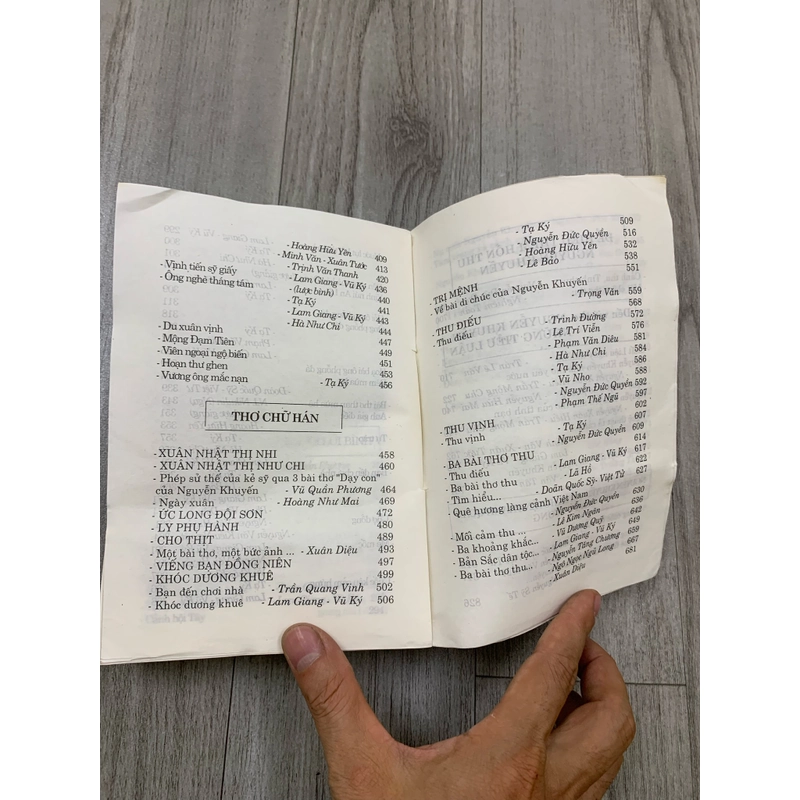 - Hoàng Hữu Yên 409
- Minh Văn - Xuân Tước 413
- Vịnh tiến sỹ giấy - Trịnh Văn Thanh 420
- Ông nghè tháng tám - Lam Giang - Vũ Ký 436
(lược bình) 440
- Tạ Ký 441
- Lam Giang - Vũ Ký 443
- Hà Như Chi 444
- Du xuân vịnh 447
- Mộng Đạm Tiên 451
- Viên ngoại ngộ biến 453
- Hoạn thư ghen
- Vương ông mắc nạn - Tạ Ký 456
THƠ CHỮ HÁN
- XUÂN NHẬT THỊ NHI 458
- XUÂN NHẬT THỊ NHƯ CHI 460
- Phép sử thế của kẻ sỹ qua 3 bài thơ "Dạy con"
của Nguyễn Khuyến - Vũ Quần Phương 464
- Ngày xuân - Hoàng Như Mai 469
- ỨC LONG ĐỘI SƠN 472
- LY PHỤ HÀNH 480
- CHO THỊT 489
- Một bài thơ, một bức ảnh ... - Xuân Diệu 493
- VIẾNG BẠN ĐỒNG NIÊN 497
- KHÓC DƯƠNG KHUÊ 499
- Bạn đến chơi nhà - Trần Quang Vinh 502
- Khóc dương khuê - Lam Giang - Vũ Ký 506
- Tạ Ký 509
- Nguyễn Đức Quyền 516
- Hoàng Hữu Yên 532
- Lê Bảo 538
551
- TRI MỆNH
- Về bài di chúc của Nguyễn Khuyến
- Trọng Văn 559
- THU ĐIẾU 568
- Thu điếu - Trinh Đường 572
- Lê Trí Viễn 576
- Phạm Văn Diêu 581
- Hà Như Chi 584
- Tạ Ký 586
- Vũ Nho 588
- Nguyễn Đức Quyền 592
- Phạm Thế Ngũ 597
602
- THU VỊNH 607
- Thu vịnh - Tạ Ký 609
- Nguyễn Đức Quyền 614
- BA BÀI THƠ THU
- Thu điếu - Lam Giang - Vũ Ký 622
- Ba bài thơ thu - Lã Hồ 627
- Tìm hiểu... - Doãn Quốc Sỹ- Việt Tử
- Quê hương làng cảnh Việt Nam
- Nguyễn Đức Quyền 630
- Mối cảm thu ... - Lê Kim Ngân 636
- Ba khoảng khắc... - Vũ Dương Quỹ 642
- Bản Sắc dân tộc... - Lam Giang - Vũ Ký 649
- Ba bài thơ thu... - Nguyễn Tăng Chương 659
- Ngô Ngọc Ngũ Long 667
- Xuân Diệu 681